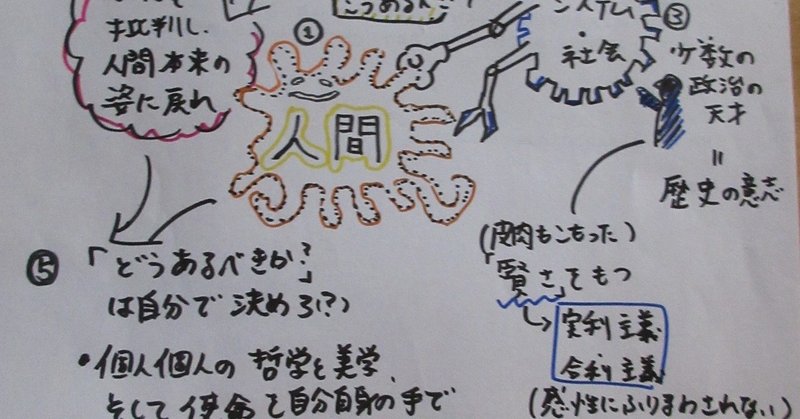 批判し、
人間本来の
姿に戻れ
①
人間
システム
・
社会
③
少数の
政治の
天才
=
歴史の意志
⑤
「どうあるべきか?」
は自分で決めろ(?)
(皮肉もこもった)
「賢さ」をもつ
実利主義
合利主義
(感性にふりまわされない)
・個人個人の哲学と美学、
そして使命を自分自身の手で